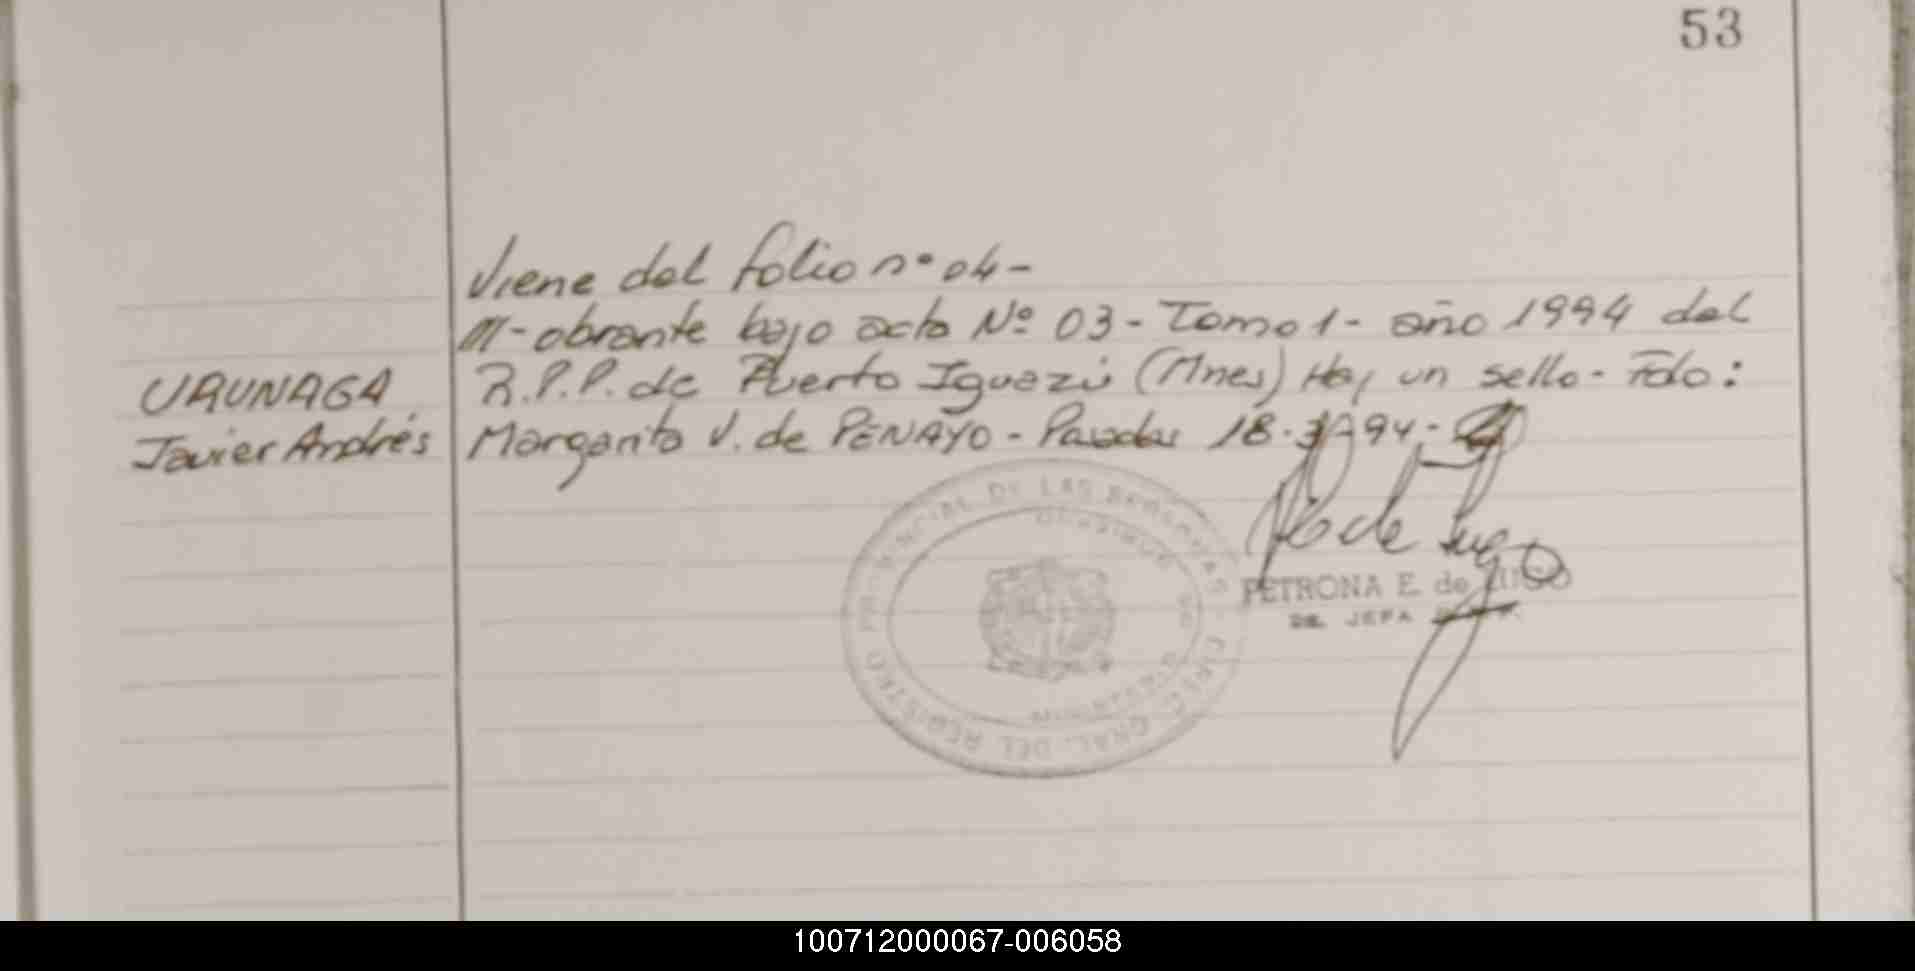 53
Viene del folio nº 04-
///- obrante bajo acta Nº 03 - Tomo 1 - año 1994 del
URUNAGA R.P.P. de Puerto Iguazú (Mnes) Hay un sello - Fdo:
Javier Andrés Margarita V. de PENAYO - Posadas 18.3.94.-
PROVINCIAL DE LAS PERSONAS
DIREC. GRAL. DEL REGISTRO
PETRONA E. de LUGO
JEFA
100712000067-006058